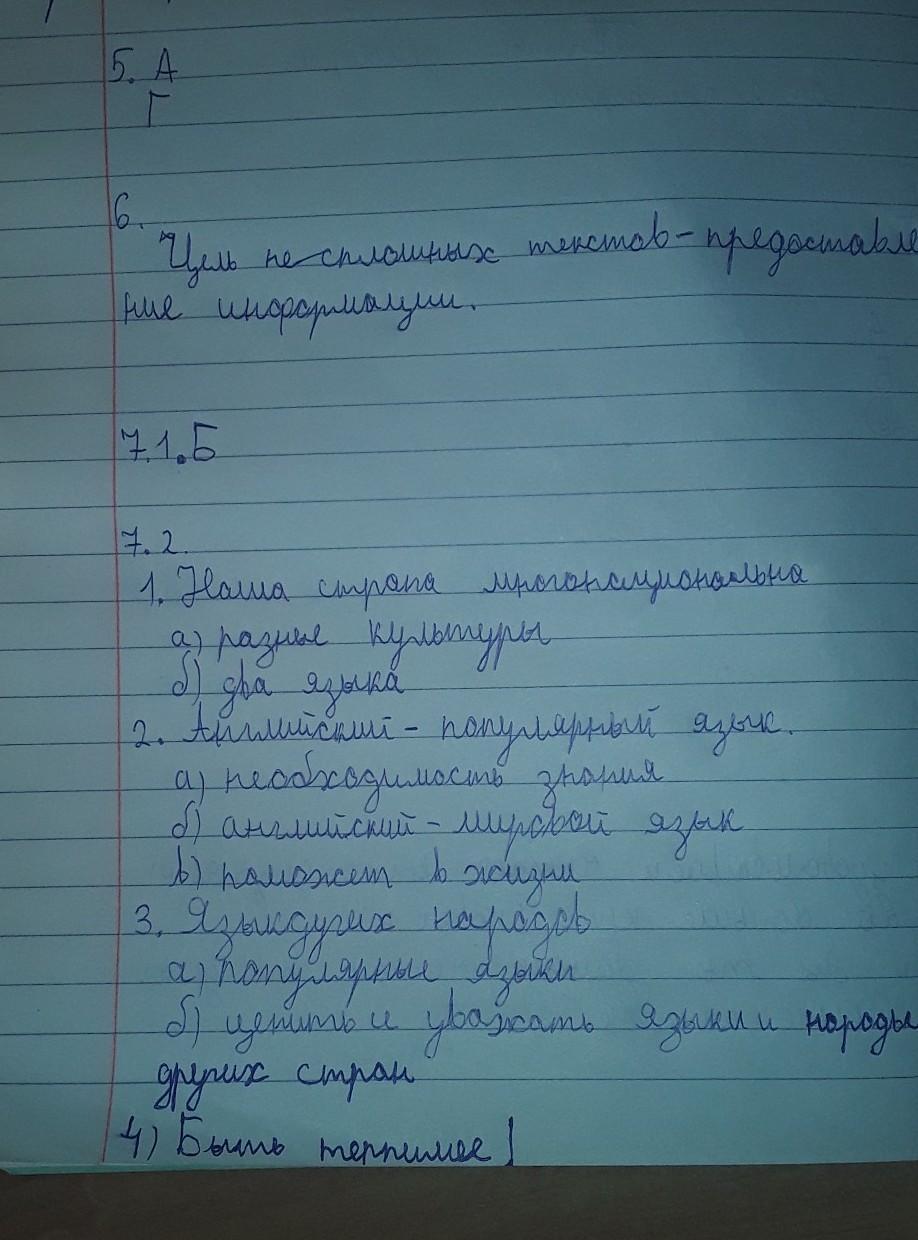 5. А
Г
6.
Цель несплошных текстов - предоставле
ние информации.
7.1. Б
7.2.
1. Наша страна многонациональна
а) разные культуры
б) два языка
2. Английский - популярный язык.
а) необходимость знания
б) английский - мировой язык
в) поможет в жизни
3. Языкдугих народов
а) популярные языки
б) ценить и уважать языки и народы
других стран
4) Быть терпимее!